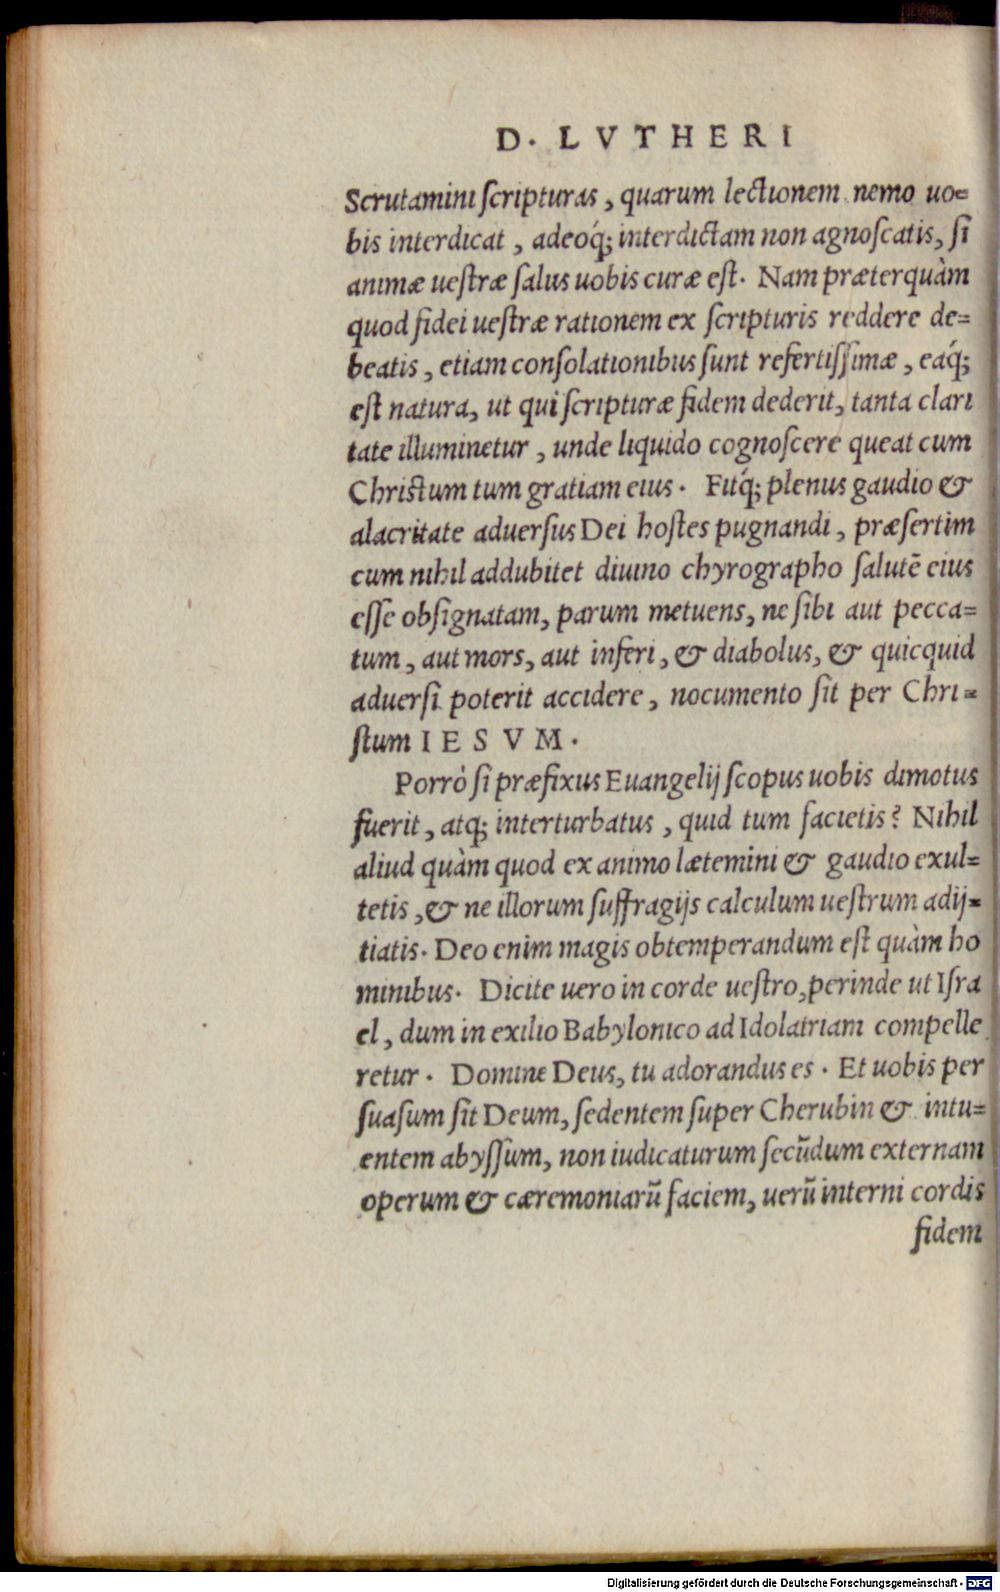 D. LVTHERI
Scrutamini ſcripturas, quarum lectionem nemo uo=
bis interdicat, adeoq́; interdictam non agnoſcatis, ſi
animæ ueſtræ ſalus uobis curæ eſt. Nam præterquàm
quod fidei ueſtræ rationem ex ſcripturis reddere de=
beatis, etiam conſolationibus ſunt refertiſſimæ, eaq́;
eſt natura, ut qui ſcripturæ fidem dederit, tanta clari
tate illuminetur, unde liquido cognoſcere queat cum
Chriſtum tum gratiam eius. Fitq́; plenus gaudio &
alacritate aduerſus Dei hoſtes pugnandi, præſertim
cum nihil addubitet diuino chyrographo ſalutē eius
eſſe obſignatam, parum metuens, ne ſibi aut pecca=
tum, aut mors, aut inferi, & diabolus, & quicquid
aduerſi poterit accidere, nocumento ſit per Chri=
ſtum IESVM.
Porrò ſi præfixus Euangelij ſcopus uobis dimotus
fuerit, atq; interturbatus, quid tum facietis? Nihil
aliud quàm quod ex animo lætemini & gaudio exul=
tetis, & ne illorum ſuffragijs calculum ueſtrum adij=
tiatis. Deo enim magis obtemperandum eſt quàm ho
minibus. Dicite uero in corde ueſtro, perinde ut Iſra
el, dum in exilio Babylonico ad Idolatriam compelle
retur. Domine Deus, tu adorandus es. Et uobis per
ſuaſum ſit Deum, ſedentem ſuper Cherubin & intu=
entem abyſſum, non iudicaturum ſecūdum externam
operum & cæremoniarū faciem, uerū interni cordis
fidem
Digitalisierung gefördert durch die Deutsche Forschungsgemeinschaft - DFG